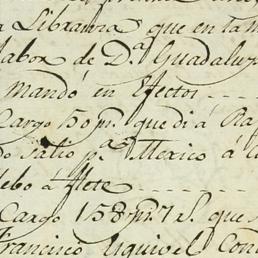 a Libranza que en la m
labor de D.ª Guadalup
mandó en efectos
Cargo 50 p.s que di á Ra
do Salio p.ª Mexico á c
lebo á flete
Cargo 158 p.s 7 r.s que
Francisco Esquivel Con